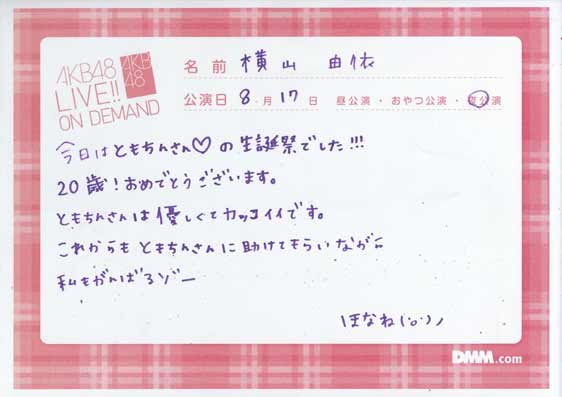 AKB48
LIVE!!
ON DEMAND
AKB
48
名前 横山 由依
公演日 8月17日 昼公演・おやつ公演・夜公演
今日はともちんさん♡の生誕祭でした!!!
20歳!おめでとうございます。
ともちんさんは優しくてカッコイイです。
これからもともちんさんに助けてもらいながら
私もがんばるゾー
ほなね(˙o˙)ノ
DMM.com